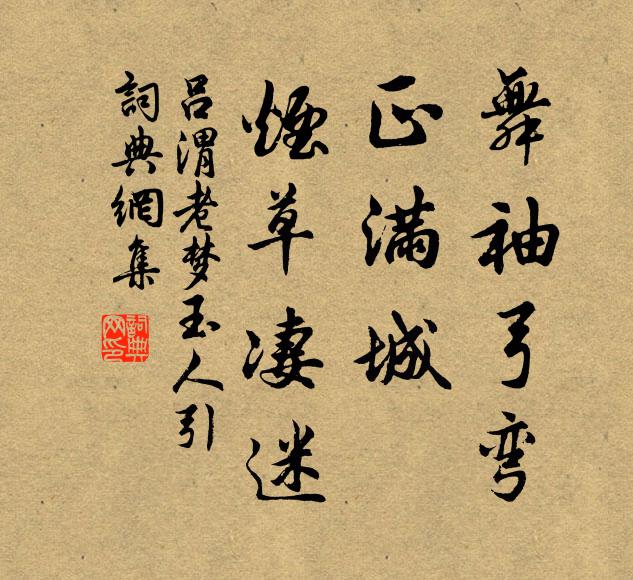 舞袖弓弯
正满城
烟草凄迷
吕渭老梦玉人引
詞典網集
詞典网印